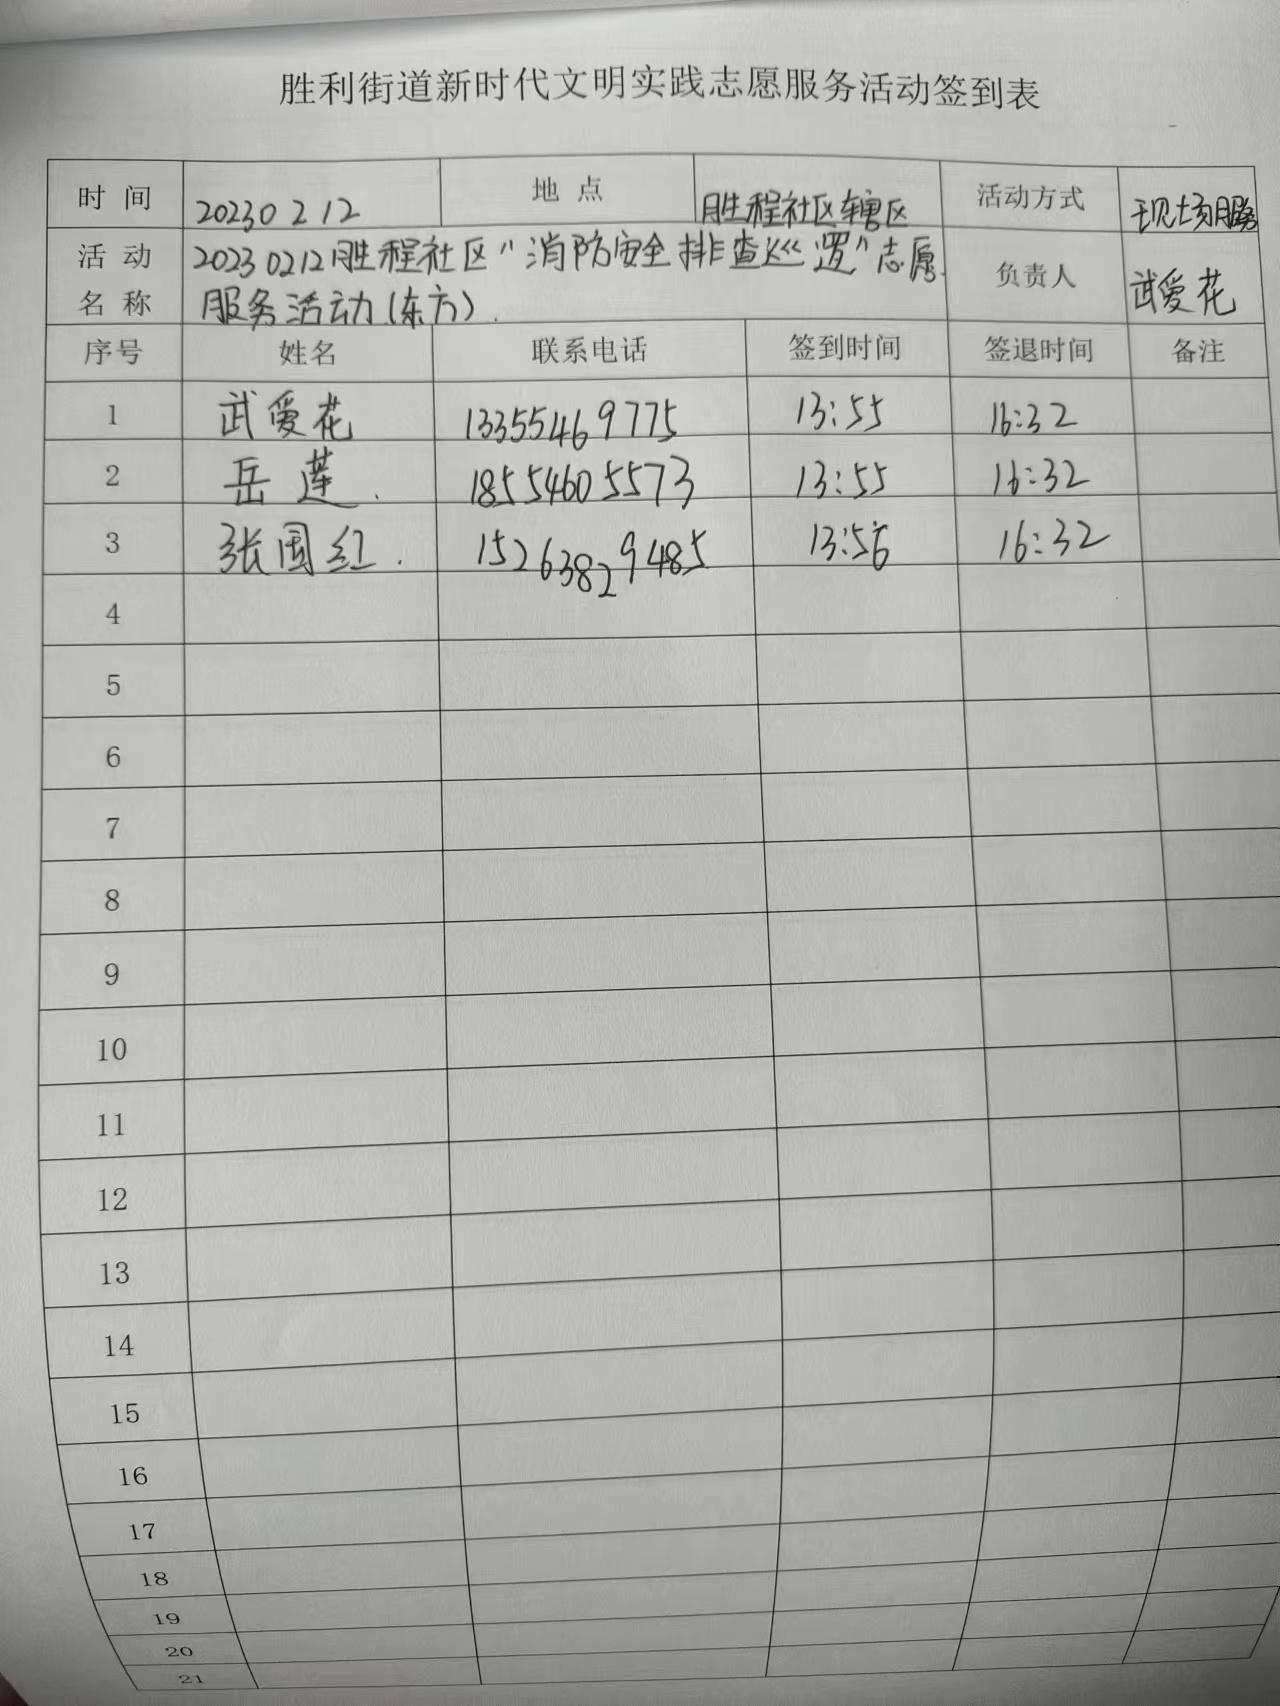 胜利街道新时代文明实践志愿服务活动签到表
时 间 20230212 地 点 胜程社区辖区 活动方式 现场服务
活 动 名 称 20230212胜程社区"消防安全排查巡逻"志愿 负责人 武爱花
服务活动(东方).
序号 姓名 联系电话 签到时间 签退时间 备注
1 武爱花 13355469775 13:55 16:32
2 岳莲. 18554605573 13:55 16:32
3 张国红. 15263829485 13:56 16:32
4
5
6
7
8
9
10
11
12
13
14
15
16
17
18
19
20
21